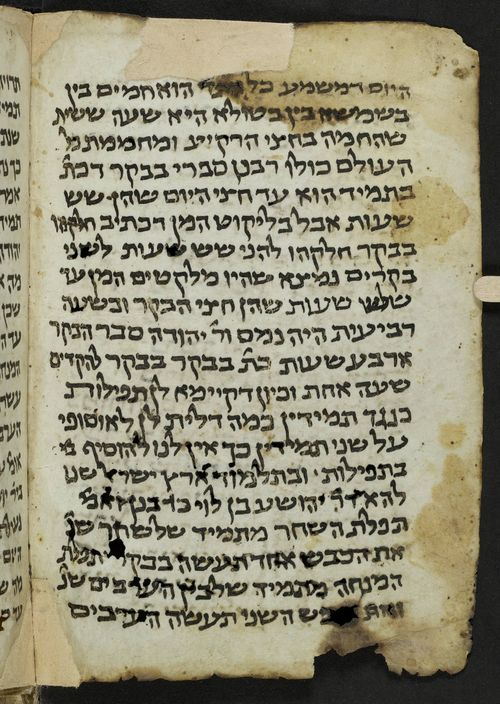 היום דמשמע כל היום הוא חמים בין
בשמשא בין בטולא היא שעה ששית
שהחמה בחצי הרקיע ומחממת כל
העולם כולו רבנן סברי בבקר דכת'
בתמיד הוא עד חצי היום שהן שש
שעות אבל בליקוט המן דכתיב
בבקר חלקהו להני שש שעות לשני
בקרים נמצא שהיו מלקטים המן עד
שלש שעות שהן חצי הבקר ובשעה
רביעית היה נמס ור' יהודה סבר הבקר
ארבע שעות כת' בבקר בבקר להקדים
שעה אחת וכיון דקיימא לן תפילות
כנגד תמידין כמה דלית לן לאוסופי
על שני תמידין כך אין לנו להוסיף
בתפילות ובתלמוד ארץ ישראל שנו
להא דר' יהושע בן לוי כרבנן
תפלת השחר מתמיד שלשחר שנ'
את הכבש אחד תעשה בבקר תפלת
המנחה מתמיד שלבין הערבים שנ'
ואת הכבש השני תעשה בין הערבים